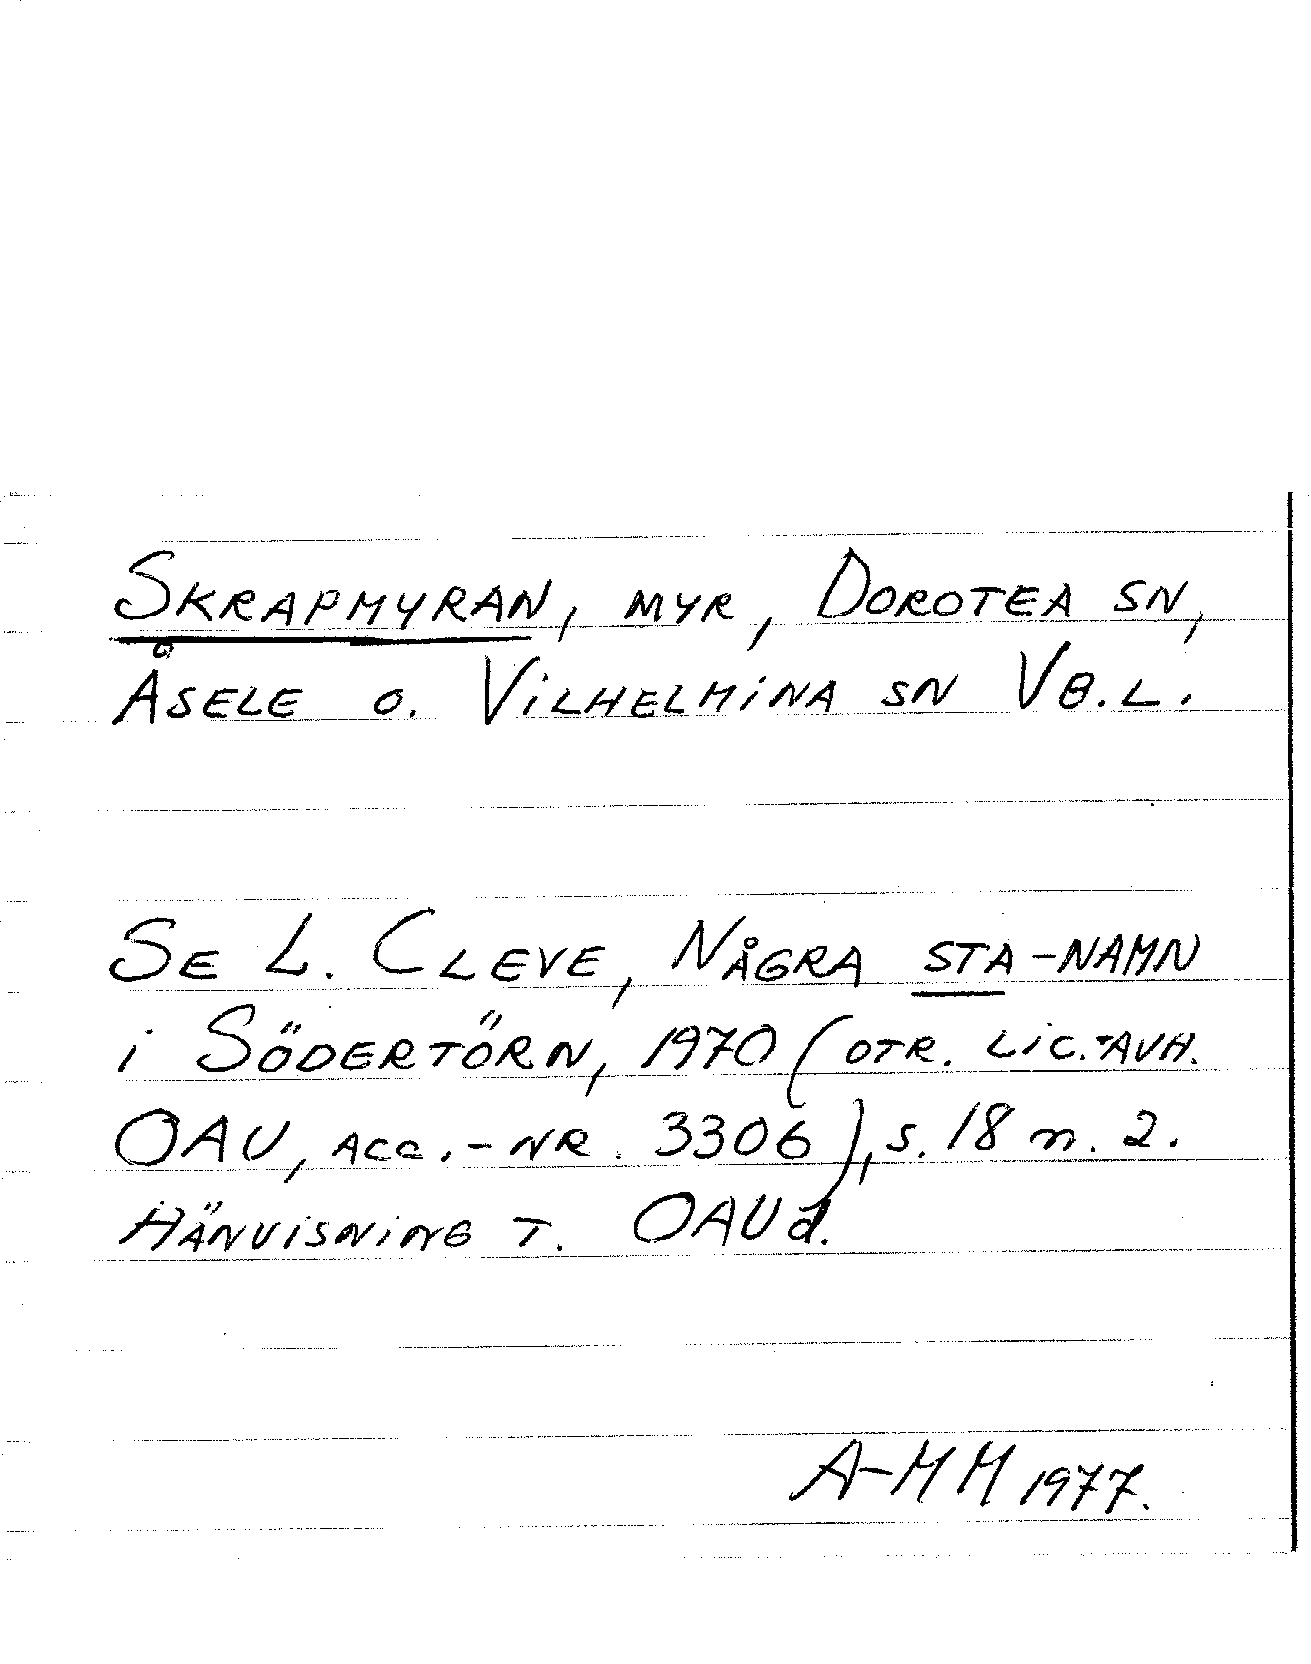 SKRAPMYRAN, MYR, DOROTEA SN,
ÅSELE O. VILHELMINA SN VB.L.
SE L. CLEVE, NÅGRA STA-NAMN
i SÖDERTÖRN, 1970 (OTR. LIC.-AVH.
OAU, ACC.-NR. 3306), S. 18 n. 2.
HÄNVISNING T. OAUd.
A-MM 1977.